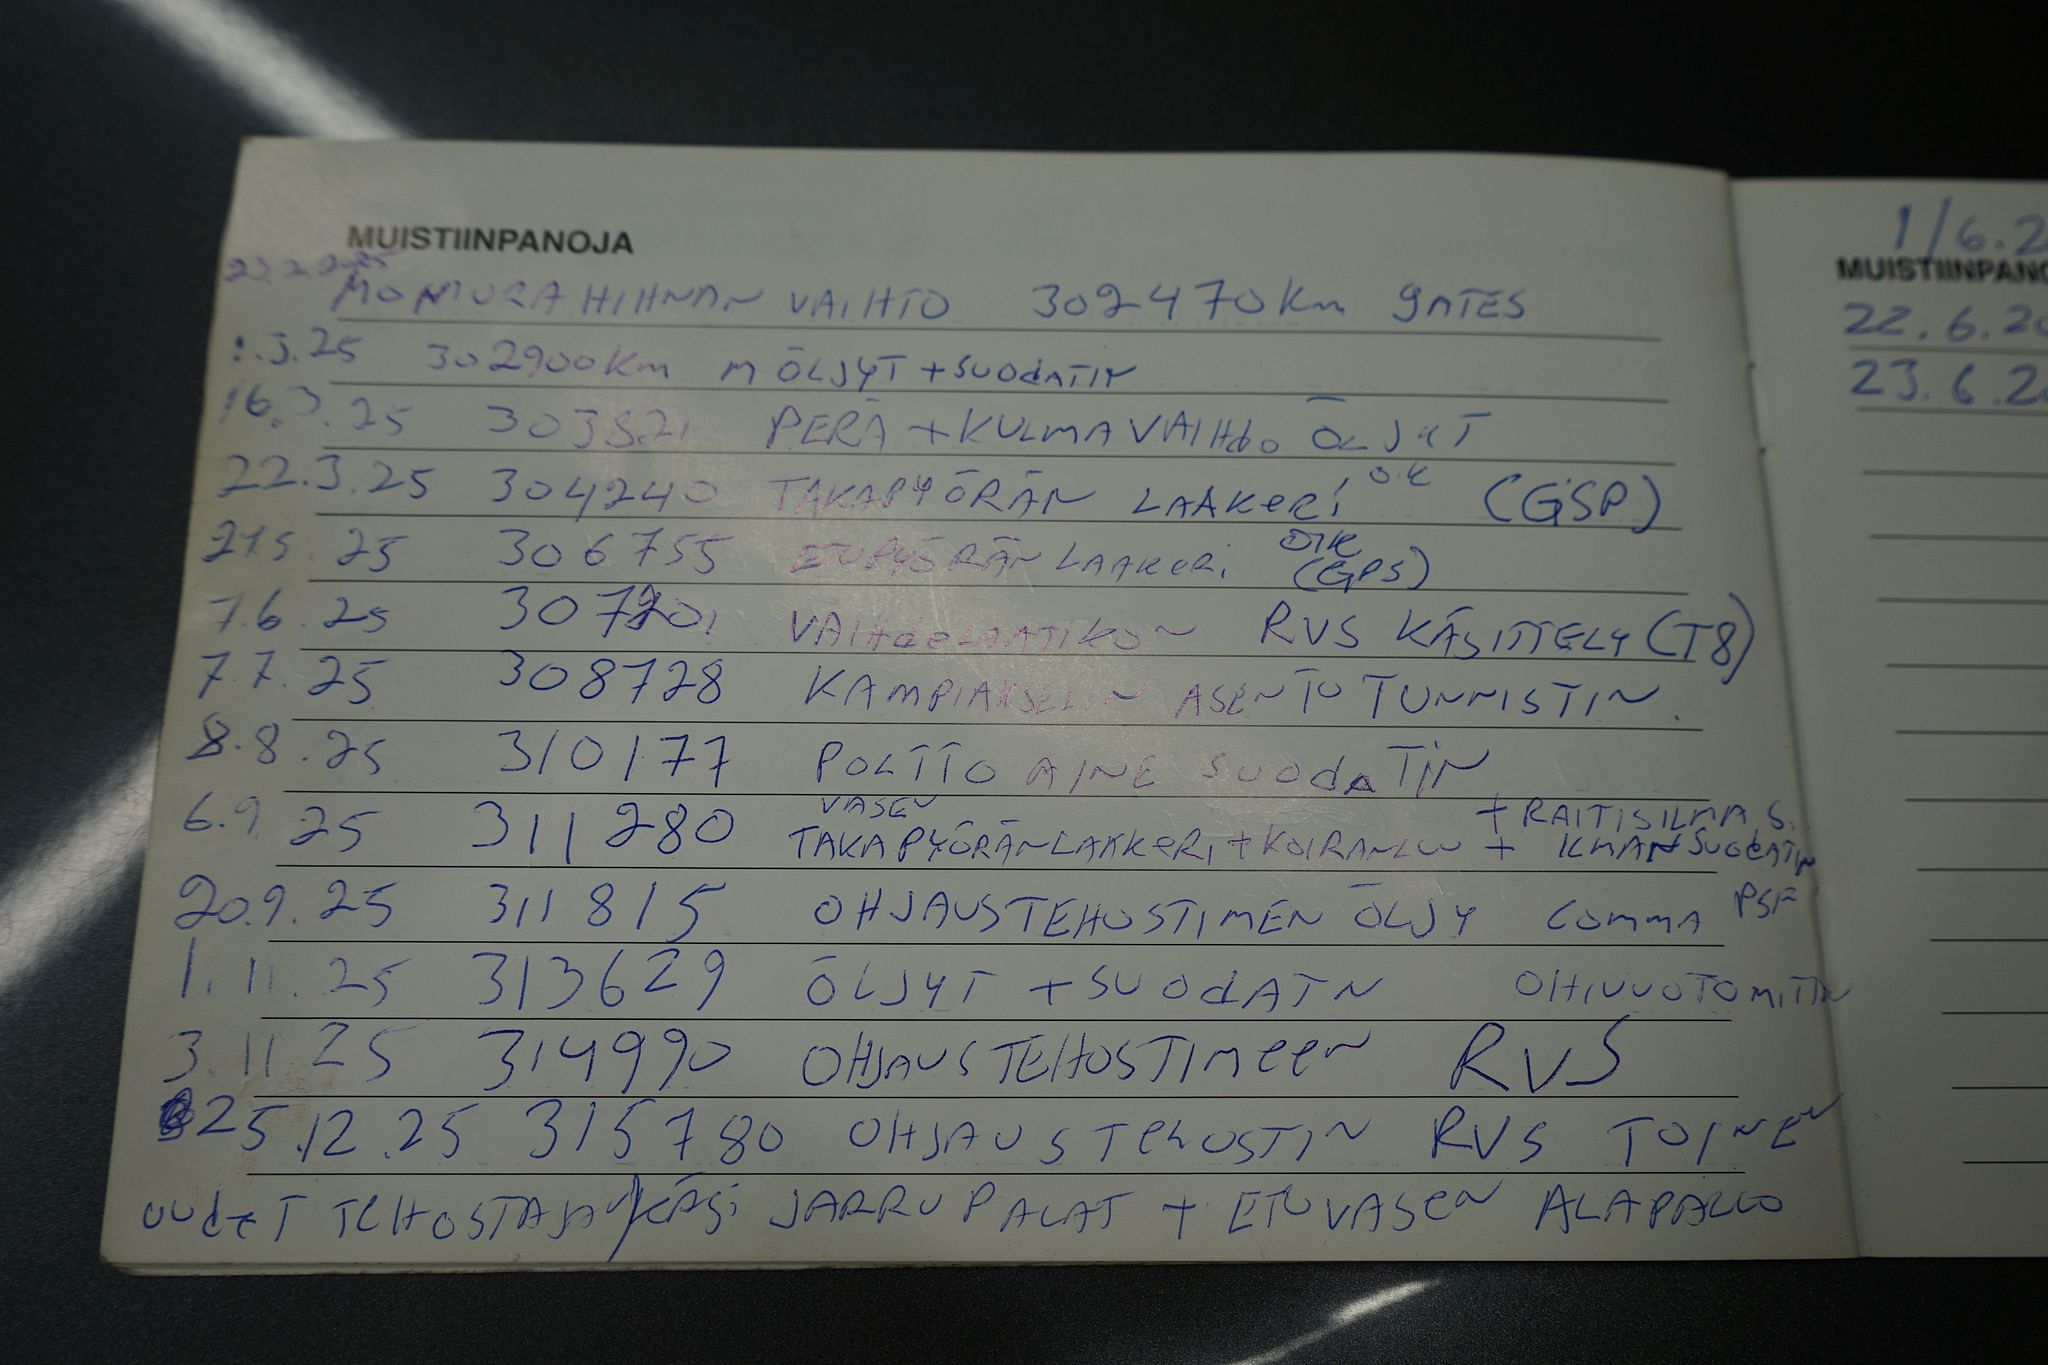 MUISTIINPANOJA
23.2.2025
MONIURAHIHNAN VAIHTO 302470 km GATES
1.3.25 302900 km MÖLJYT + SUODATIN
16.3.25 303821 PERÄ + KULMAVAIHDE ÖLJYT
22.3.25 304240 TAKAPYÖRÄN LAAKERI OIK (GSP)
21.5.25 306755 ETUPYÖRÄN LAAKERI OIK (GPS)
7.6.25 VAIHDELAATIKON RVS KÄSITTELY (T8)
7.7.25 308728 KAMPIAKSELIN ASENTOTUNNISTIN.
8.8.25 310177 POLTTOAINE SUODATIN
VASEN + RAITISILMA S.
6.9.25 311280 TAKAPYÖRÄN LAAKERI + KOIRANLUU + ILMANSUODATIN
20.9.25 311815 OHJAUSTEHOSTIMEN ÖLJY COMMA PSF
1.11.25 313629 ÖLJYT + SUODATN OHIVUOTOMITTN
3.11.25 314990 OHJAUSTEHOSTIMEEN RVS
25.12.25 315780 OHJAUSTEHOSTIN RVS TOINEN
UUDET KÄSI JARRUPALAT + ETUVASEN ALAPALLO
1/6.2
MUISTIINPANO
22.6.20
23.6.20